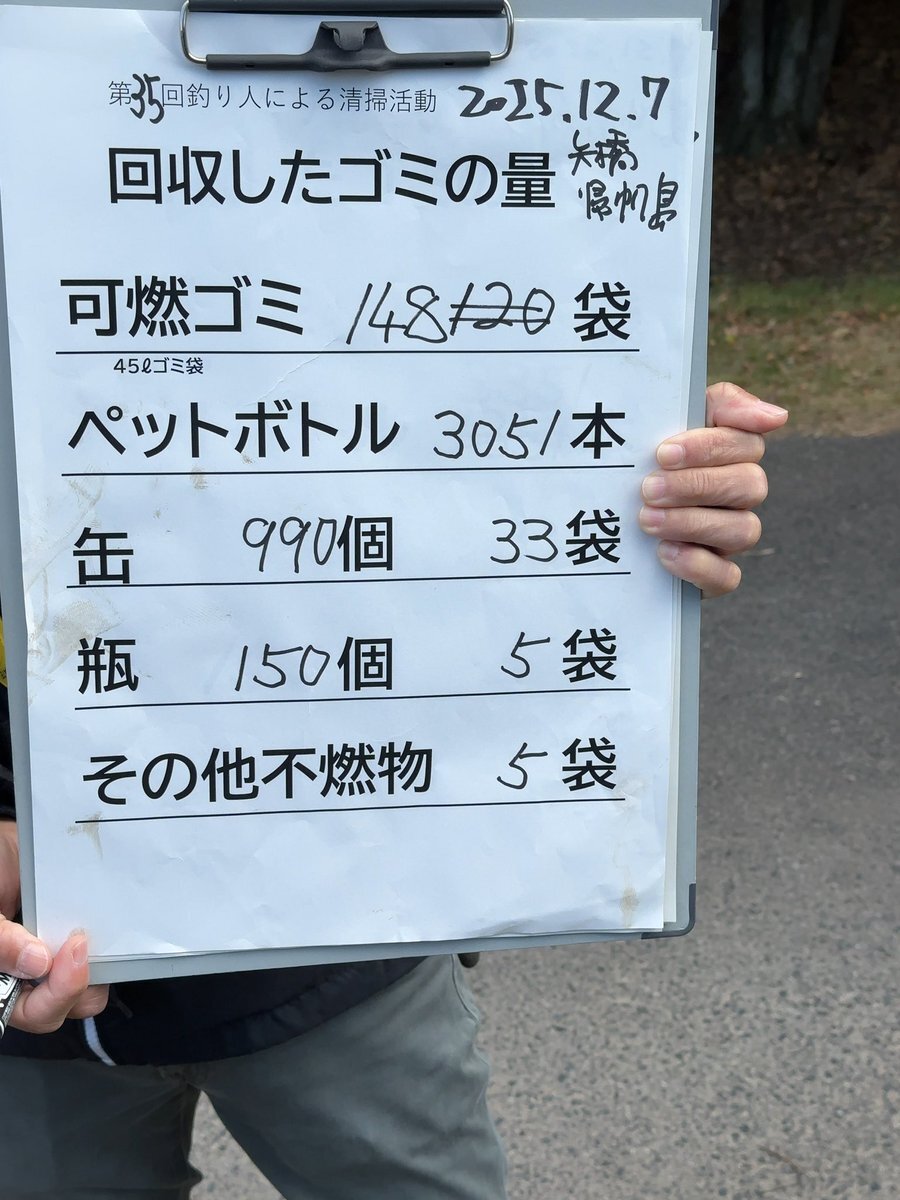 第35回釣り人による清掃活動 2025.12.7
回収したゴミの量 矢橋
帰帆島
可燃ゴミ 148 120 袋
45ℓゴミ袋
ペットボトル 3051本
缶 990個 33袋
瓶 150個 5袋
その他不燃物 5袋